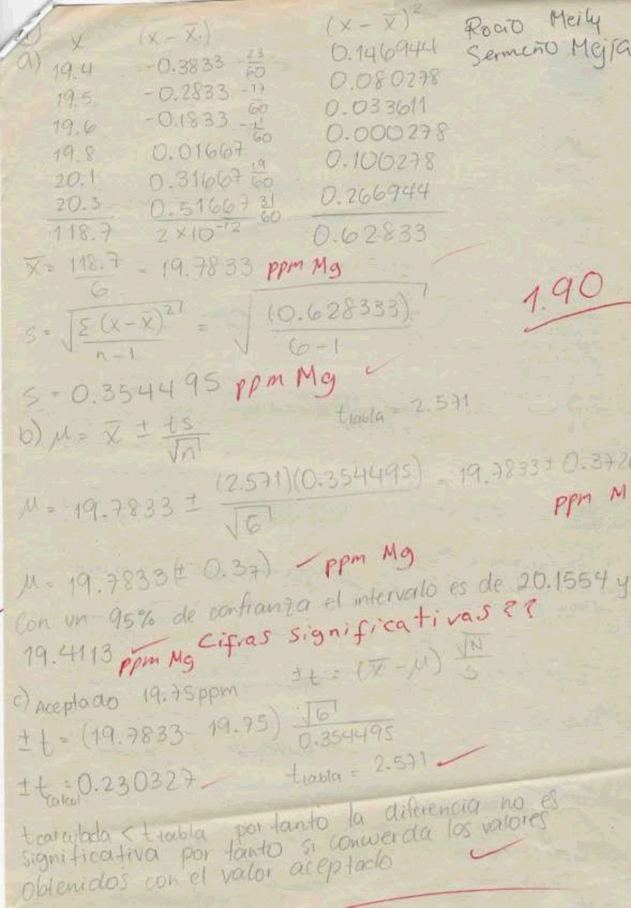 x (x - x̄) (x - x̄)² Rocío Meily
a) 19.4 -0.3833 -23/60 0.146944 Sermeño Mejía
19.5 -0.2833 -17/60 0.080278
19.6 -0.1833 -11/60 0.033611
19.8 0.01667 0.000278
20.1 0.31667 19/60 0.100278
20.3 0.51667 31/60 0.266944
118.7 2×10⁻¹² 0.62833
x̄ = 118.7/6 = 19.7833 ppm Mg
1.90
s = √(Σ(x - x̄)²/n-1) = √((0.628333)/6-1)
s = 0.354495 ppm Mg
b) μ = x̄ ± ts/√n t tabla = 2.571
μ = 19.7833 ± (2.571)(0.354495)/√6 = 19.7833 ± 0.372
ppm M
μ = 19.7833 (± 0.37) ppm Mg
Con un 95% de confianza el intervalo es de 20.1554 y
19.4113 ppm Mg Cifras significativas ??
c) Aceptado 19.75ppm ±t = (x̄ - μ) √N/s
±t = (19.7833 - 19.75) √6/0.354495
±t calcul = 0.230327 t tabla = 2.571
t calculada < t tabla por tanto la diferencia no es
significativa por tanto si concuerda los valores
obtenidos con el valor aceptado